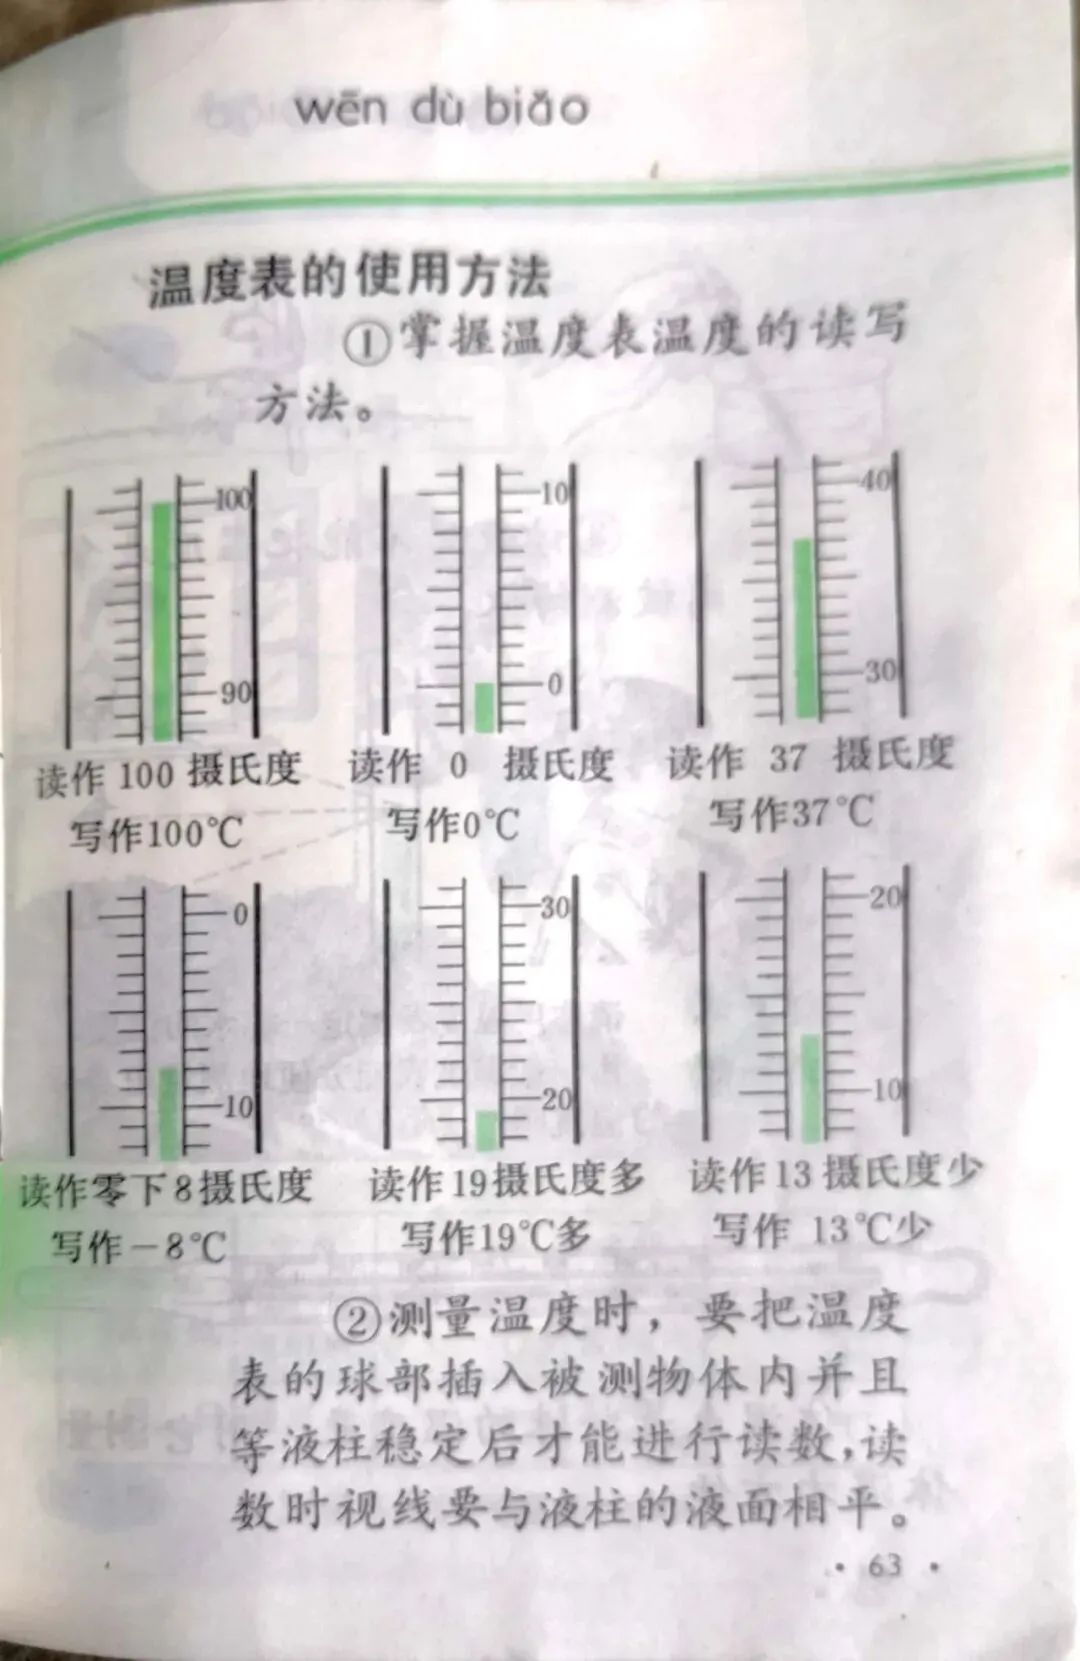 wēn dù biǎo
温度表的使用方法
①掌握温度表温度的读写
方法。
100
90
10
0
40
30
读作 100 摄氏度
写作100℃
读作 0 摄氏度
写作0℃
读作 37 摄氏度
写作37℃
0
10
30
20
20
10
读作零下8摄氏度
写作－8℃
读作19摄氏度多
写作19℃多
读作13摄氏度少
写作 13℃少
②测量温度时，要把温度
表的球部插入被测物体内并且
等液柱稳定后才能进行读数,读
数时视线要与液柱的液面相平。
· 63 ·